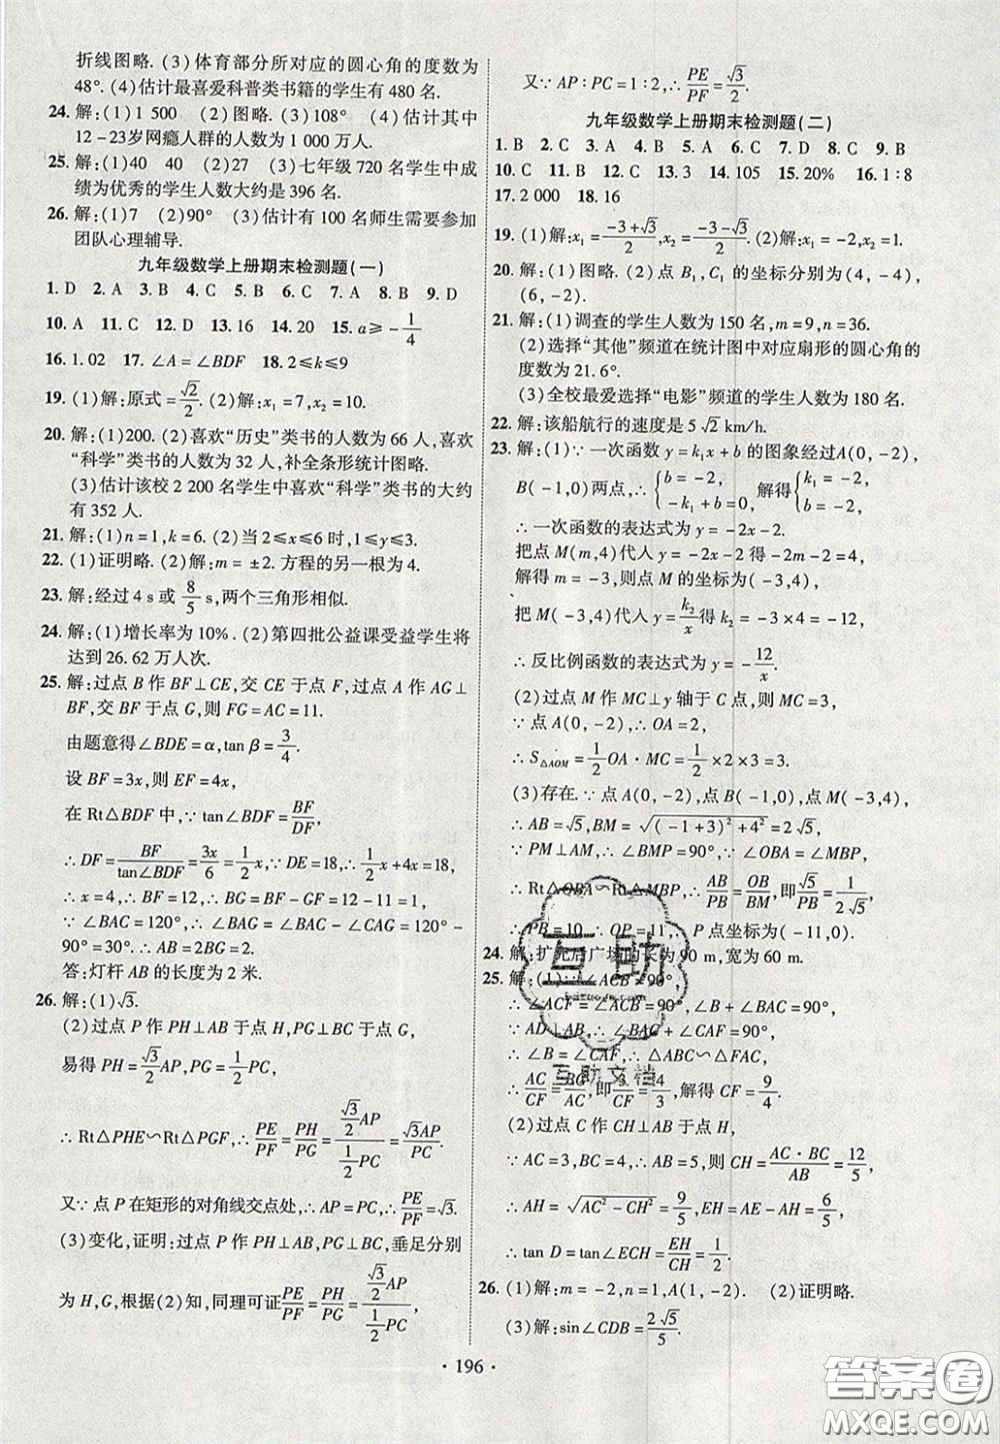 折线图略. (3)体育部分所对应的圆心角的度数为
48°. (4)估计最喜爱科普类书籍的学生有 480 名.
24. 解:(1)1 500 (2)图略. (3)108° (4)估计其中
12-23岁网瘾人群的人数为 1 000 万人.
25. 解:(1)40 40 (2)27 (3)七年级 720 名学生中成
绩为优秀的学生人数大约是 396 名.
26. 解:(1)7 (2)90° (3)估计有 100 名师生需要参加
团队心理辅导.
九年级数学上册期末检测题(一)
1. D 2. A 3. B 4. B 5. A 6. C 7. B 8. B 9. D
10. A 11. C 12. D 13. 16 14. 20 15. a≥-1/4
16. 1.02 17. ∠A=∠BDF 18. 2≤k≤9
19. (1)解:原式=√2/2. (2)解:x₁=7,x₂=10.
20. 解:(1)200. (2)喜欢“历史”类书的人数为 66 人,喜欢
“科学”类书的人数为 32 人,补全条形统计图略.
(3)估计该校 2 200 名学生中喜欢“科学”类书的大约
有 352 人.
21. 解:(1)n=1,k=6. (2)当 2≤x≤6时,1≤y≤3.
22. (1)证明略. (2)解:m=±2. 方程的另一根为 4.
23. 解:经过 4 s 或 8/5 s,两个三角形相似.
24. 解:(1)增长率为 10%. (2)第四批公益课受益学生将
达到 26.62 万人次.
25. 解:过点 B 作 BF⊥CE,交 CE 于点 F,过点 A 作 AG⊥
BF,交 BF 于点 G,则 FG=AC=11.
由题意得∠BDE=α,tan β=3/4.
设 BF=3x,则 EF=4x,
在 Rt△BDF 中,∵tan∠BDF=BF/DF,
∴DF=BF/tan∠BDF=3x/6=1/2x,∵DE=18,∴1/2x+4x=18,
∴x=4,∴BF=12,∴BG=BF-GF=12-11=1,
∵∠BAC=120°,∴∠BAG=∠BAC-∠CAG=120°-
90°=30°.∴AB=2BG=2.
答:灯杆 AB 的长度为 2 米.
26. 解:(1)√3.
(2)过点 P 作 PH⊥AB 于点 H,PG⊥BC 于点 G,
易得 PH=√3/2AP,PG=1/2PC,
∴Rt△PHE∽Rt△PGF,∴PE/PF=PH/PG=(√3/2AP)/(1/2PC)=√3AP/PC.
又∵点 P 在矩形的对角线交点处,∴AP=PC,∴PE/PF=√3.
(3)变化,证明:过点 P 作 PH⊥AB,PG⊥BC,垂足分别
为 H,G,根据(2)知,同理可证PE/PF=PH/PG=(√3/2AP)/(1/2PC),
又∵AP:PC=1:2,∴PE/PF=√3/2.
九年级数学上册期末检测题(二)
1. B 2. C 3. A 4. A 5. A 6. D 7. B 8. C 9. B
10. C 11. B 12. C 13. 2 14. 105 15. 20% 16. 1:8
17. 2 000 18. 16
19. (1)解:x₁=(-3+√3)/2,x₂=(-3-√3)/2. (2)解:x₁=-2,x₂=1.
20. 解:(1)图略. (2)点 B₁,C₁ 的坐标分别为(4,-4),
(6,-2).
21. 解:(1)调查的学生人数为 150 名,m=9,n=36.
(2)选择“其他”频道在统计图中对应扇形的圆心角的
度数为 21.6°.
(3)全校最爱选择“电影”频道的学生人数为 180 名.
22. 解:该船航行的速度是 5√2 km/h.
23. 解:(1)∵一次函数 y=k₁x+b 的图象经过A(0,-2),
B(-1,0)两点,∴{b=-2, -k₁+b=0, 解得{k₁=-2, b=-2,
∴一次函数的表达式为 y=-2x-2.
把点 M(m,4)代入 y=-2x-2 得-2m-2=4,
解得 m=-3,则点 M 的坐标为(-3,4),
把 M(-3,4)代入 y=k₂/x得 k₂=-3×4=-12,
∴反比例函数的表达式为 y=-12/x.
(2)过点 M 作 MC⊥y 轴于 C 点,则 MC=3,
∵点 A(0,-2),∴OA=2,
∴S△AOM=1/2OA·MC=1/2×2×3=3.
(3)存在.∵点 A(0,-2),点 B(-1,0),点 M(-3,4),
∴AB=√5,BM=√((-1+3)²+4²)=2√5,
∵PM⊥AM,∴∠BMP=90°,∵∠OBA=∠MBP,
∴Rt△OBA∽Rt△MBP,∴AB/PB=OB/BM,即√5/PB=1/2√5,
∴PB=10,∴OP=11,∴P点坐标为(-11,0).
24. 解:扩充后广场的长为 90 m,宽为 60 m.
25. 解:(1)∵∠ACB=90°,
∴∠ACF=∠ACB=90°,∠B+∠BAC=90°,
∵AD⊥AB,∴∠BAC+∠CAF=90°,
∴∠B=∠CAF,∴△ABC∽△FAC,
∴AC/CF=BC/AC,即3/CF=4/3,解得 CF=9/4.
(2)过点 C 作 CH⊥AB 于点 H,
∵AC=3,BC=4,∴AB=5,则 CH=AC·BC/AB=12/5,
∴AH=√(AC²-CH²)=9/5,EH=AE-AH=6/5,
∴tan D=tan∠ECH=EH/CH=1/2.
26. (1)解:m=-2,n=1,A(1,-2). (2)证明略.
(3)解:sin∠CDB=2√5/5.
互助
互助文档
· 196 ·
答案圈
MXQE.COM